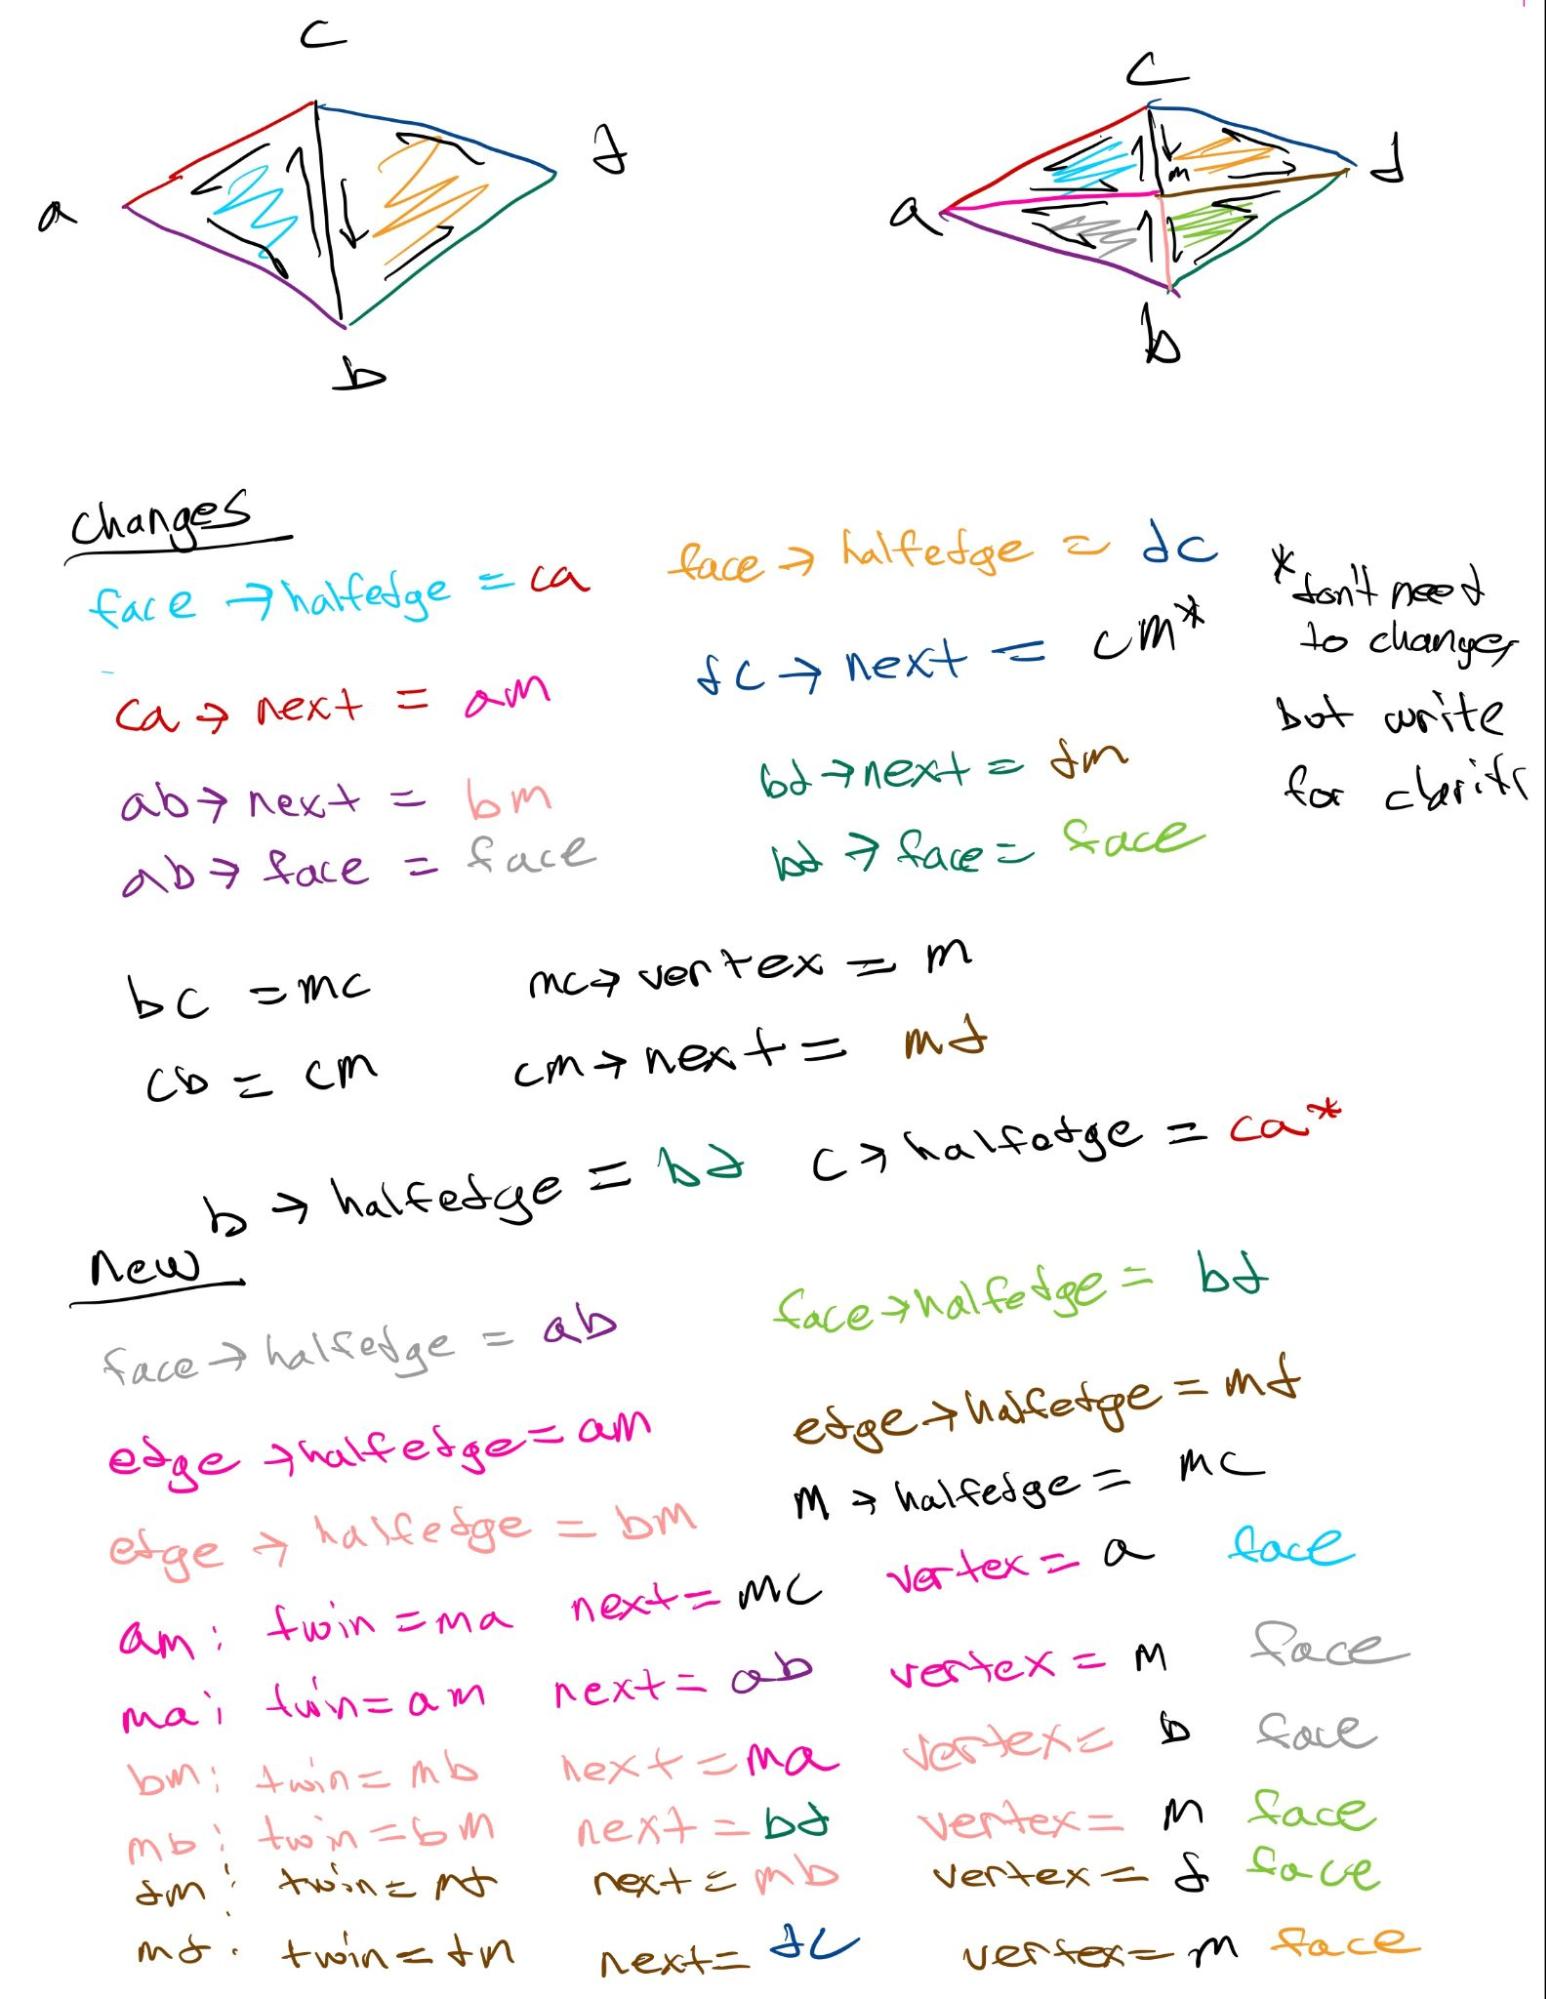 c
c
a
d
a
m
d
b
b
changes
face → halfedge = ca
face → halfedge = dc
*don't need
to change,
but write
for clarity
ca → next = am
dc → next = cm*
ab → next = bm
bd → next = dm
ab → face = face
bd → face = face
bc = mc
mc → vertex = m
cb = cm
cm → next = md
b → halfedge = bd
c → halfedge = ca*
new
face → halfedge = ab
face → halfedge = bd
edge → halfedge = am
edge → halfedge = md
edge → halfedge = bm
m → halfedge = mc
am: twin = ma next = mc vertex = a face
ma: twin = am next = ab vertex = m face
bm: twin = mb next = ma vertex = b face
mb: twin = bm next = bd vertex = m face
dm: twin = md next = mb vertex = d face
md: twin = dm next = dc vertex = m face